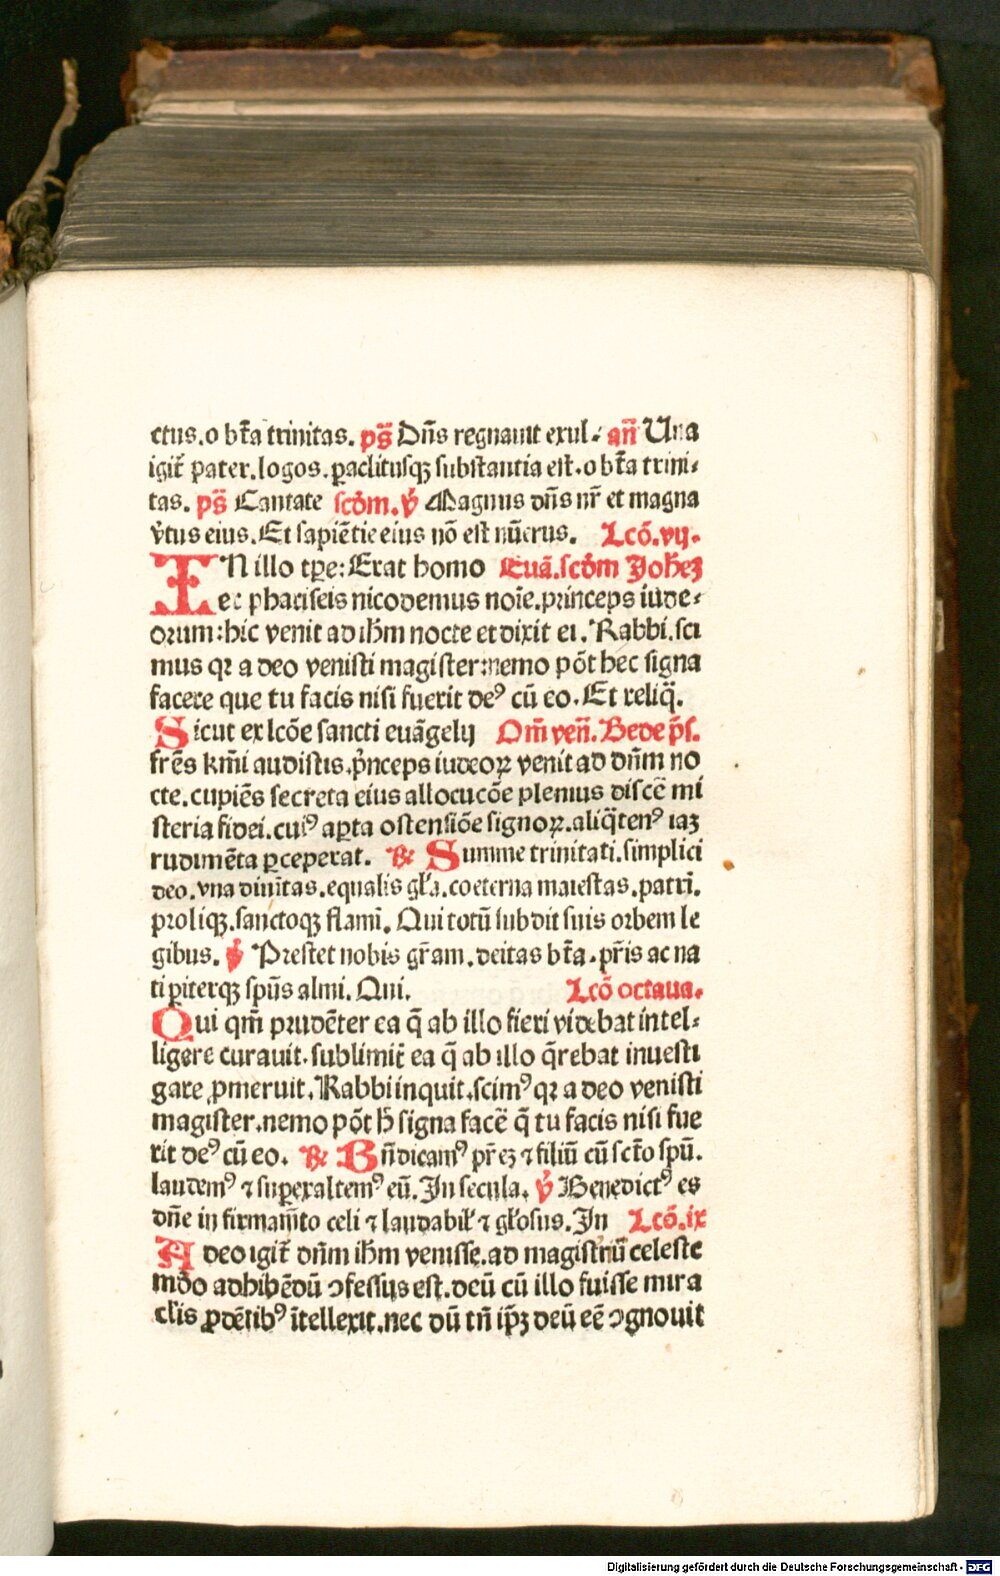 ctus.o bt̄a trinitas. ps̄ Dn̄s regnauit exul. an̄ Una
igit̄ pater.logos.ꝑaclitusqꝫ substantia est.o bt̄a trini-
tas. ps̄ Cantate scḋm. v̇ Magnus dn̄s nr̄ et magna
v̇tus eius. Et sapiētie eius nō est nūerus. Lcō.vij.
IN illo tp̄e: Erat homo Euā.scḋm Joh̄eꝫ
ec phariseis nicodemus noīe.princeps iude-
orum: hic venit ad ih̄m nocte et dixit ei. Rabbi.sci
mus qꝛ a deo venisti magister:nemo pōt hec signa
facere que tu facis nisi fuerit deꝰ cū eo. Et reliq̄.
Sicut ex lcōe sancti euāgelij Om̄ ven̄. Bede p̄s.
fr̄es km̄i audistis.pͥnceps iudeoꝝ venit ad dn̄m no
cte.cupiēs secreta eius allocucōe plenius discē mi
steria fidei.cuiꝰ aꝑta ostensiōe signoꝝ.aliq̄tenꝰ iaꝫ
rudimēta ꝑceperat. ℟ Summe trinitati.simplici
deo.vna diuīitas.equalis gl̄a.coeterna maiestas.patri.
proliqꝫ.sanctoqꝫ flami. Qui totū subdit suis orbem le
gibus. v̇ Prestet nobis gr̄am.deitas bt̄a.pr̄is ac na
ti ꝑiterqꝫ spūs almi. Qui. Lcō octaua.
Qui qm̄ prudēter ea q̄ ab illo fieri videbat intel-
ligere curauit.sublimit̄ ea q̄ ab illo q̄rebat inuesti
gare ꝓmeruit. Rabbi inquit.scimꝰ qꝛ a deo venisti
magister.nemo pōt h̄ signa facē q̄ tu facis nisi fue
rit deꝰ cū eo. ℟ Bn̄dicamꝰ pr̄eꝫ ⁊ filiū cū sct̄o spū.
laudemꝰ ⁊ suꝑexaltemꝰ eū. In secula. v̇ Benedictꝰ es
dn̄e in firmam̄to celi ⁊ laudabil̄ ⁊ gl̄osus. In Lcō.ix
A deo igit̄ dn̄m ih̄m venisse.ad magistriū celeste
mḋo adhibēdū ꝯfessus est.deū cū illo fuisse mira
clis ꝓdētibꝰ ītellexit.nec dū tn̄ ip̄ꝫ deū eē ꝯgnouit
Digitalisierung gefördert durch die Deutsche Forschungsgemeinschaft - DFG